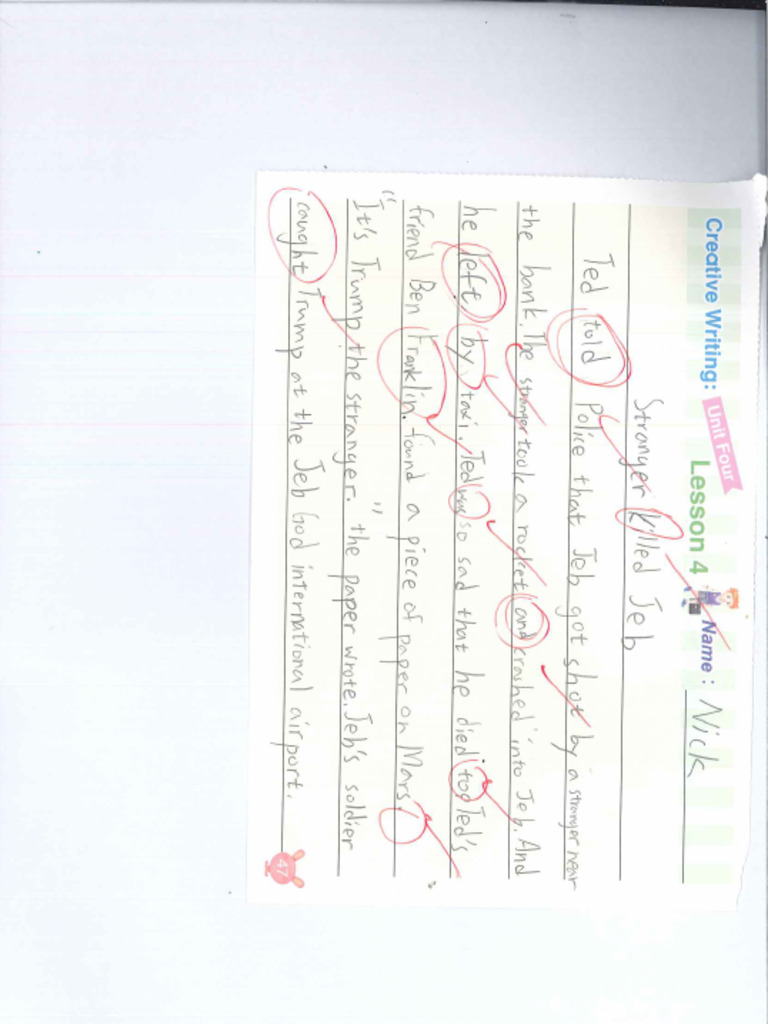 Creative Writing: Unit Four Lesson 4 Name: Nick
Stranger Killed Jeb
Ted told Police that Jeb got shot by a stranger near
the bank. The stranger took a rocket and crashed into Jeb. And
he left by taxi. Ted was so sad that he died too Ted's
friend Ben Franklin. found a piece of paper on Mars.
"It's Trump the stranger." the paper wrote. Jeb's soldier
caught Trump at the Jeb God international airport.
47